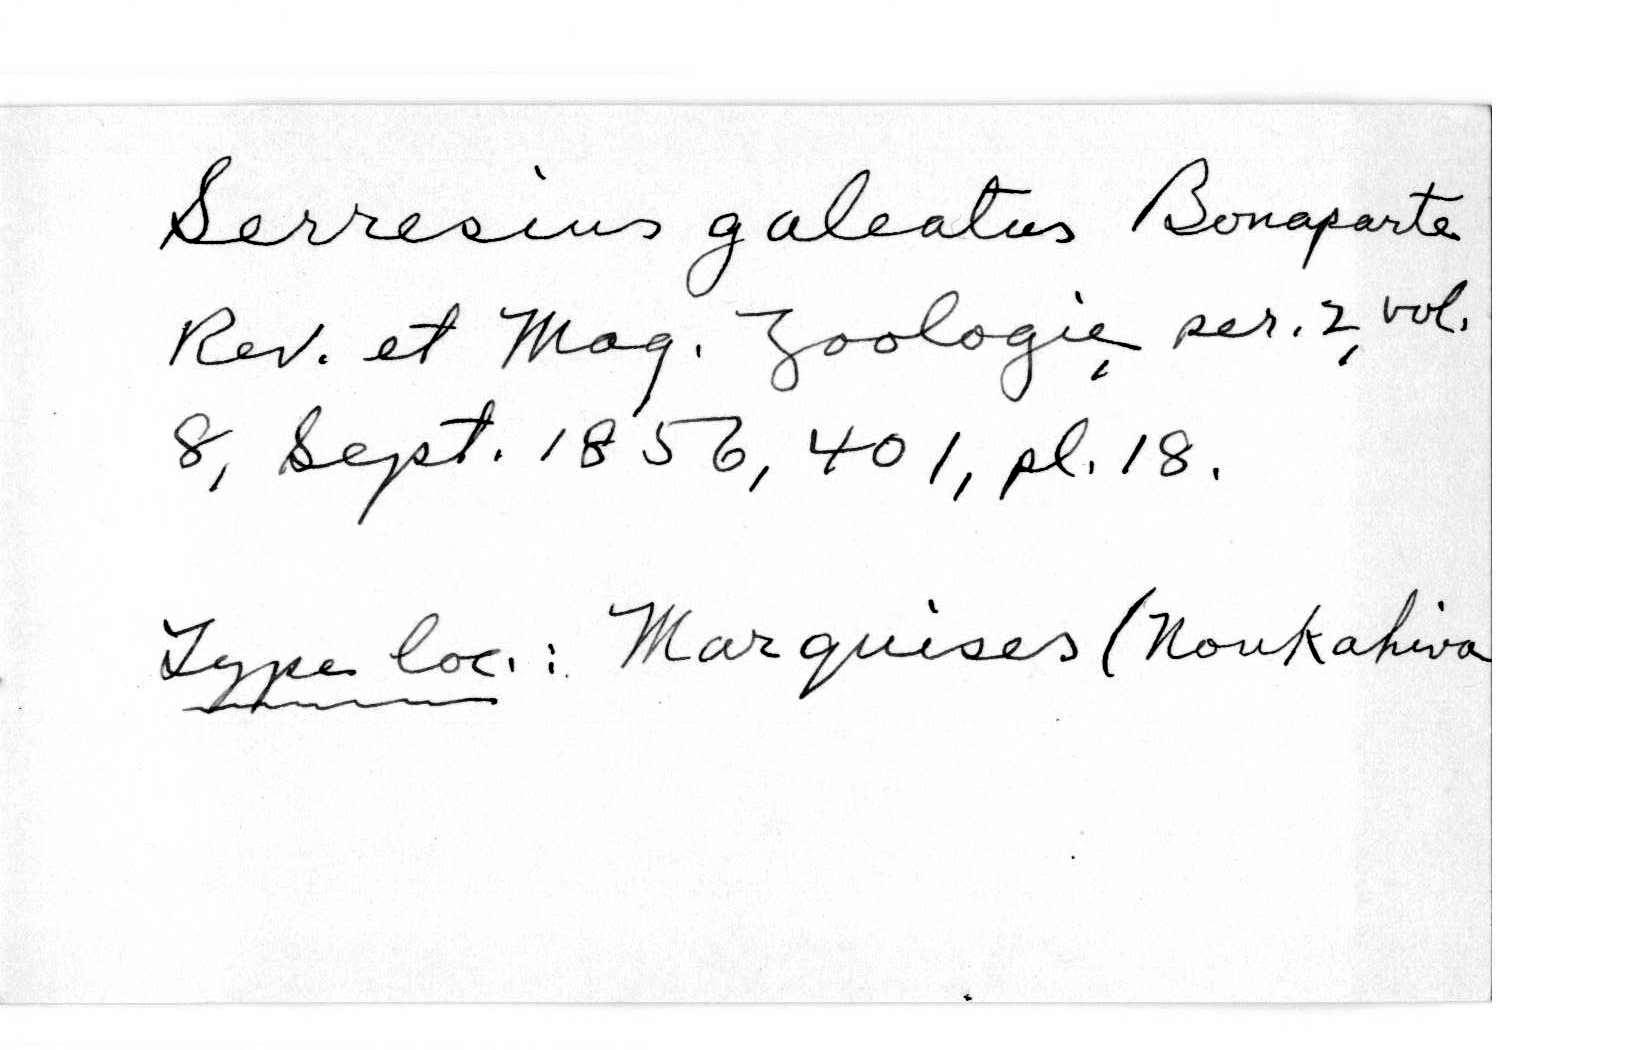 Serresius galeatus Bonaparte
Rev. et Mag. Zoologie, ser. 2, vol.
8, Sept. 1856, 401, pl. 18.
Type loc.: Marquises (Noukahiva